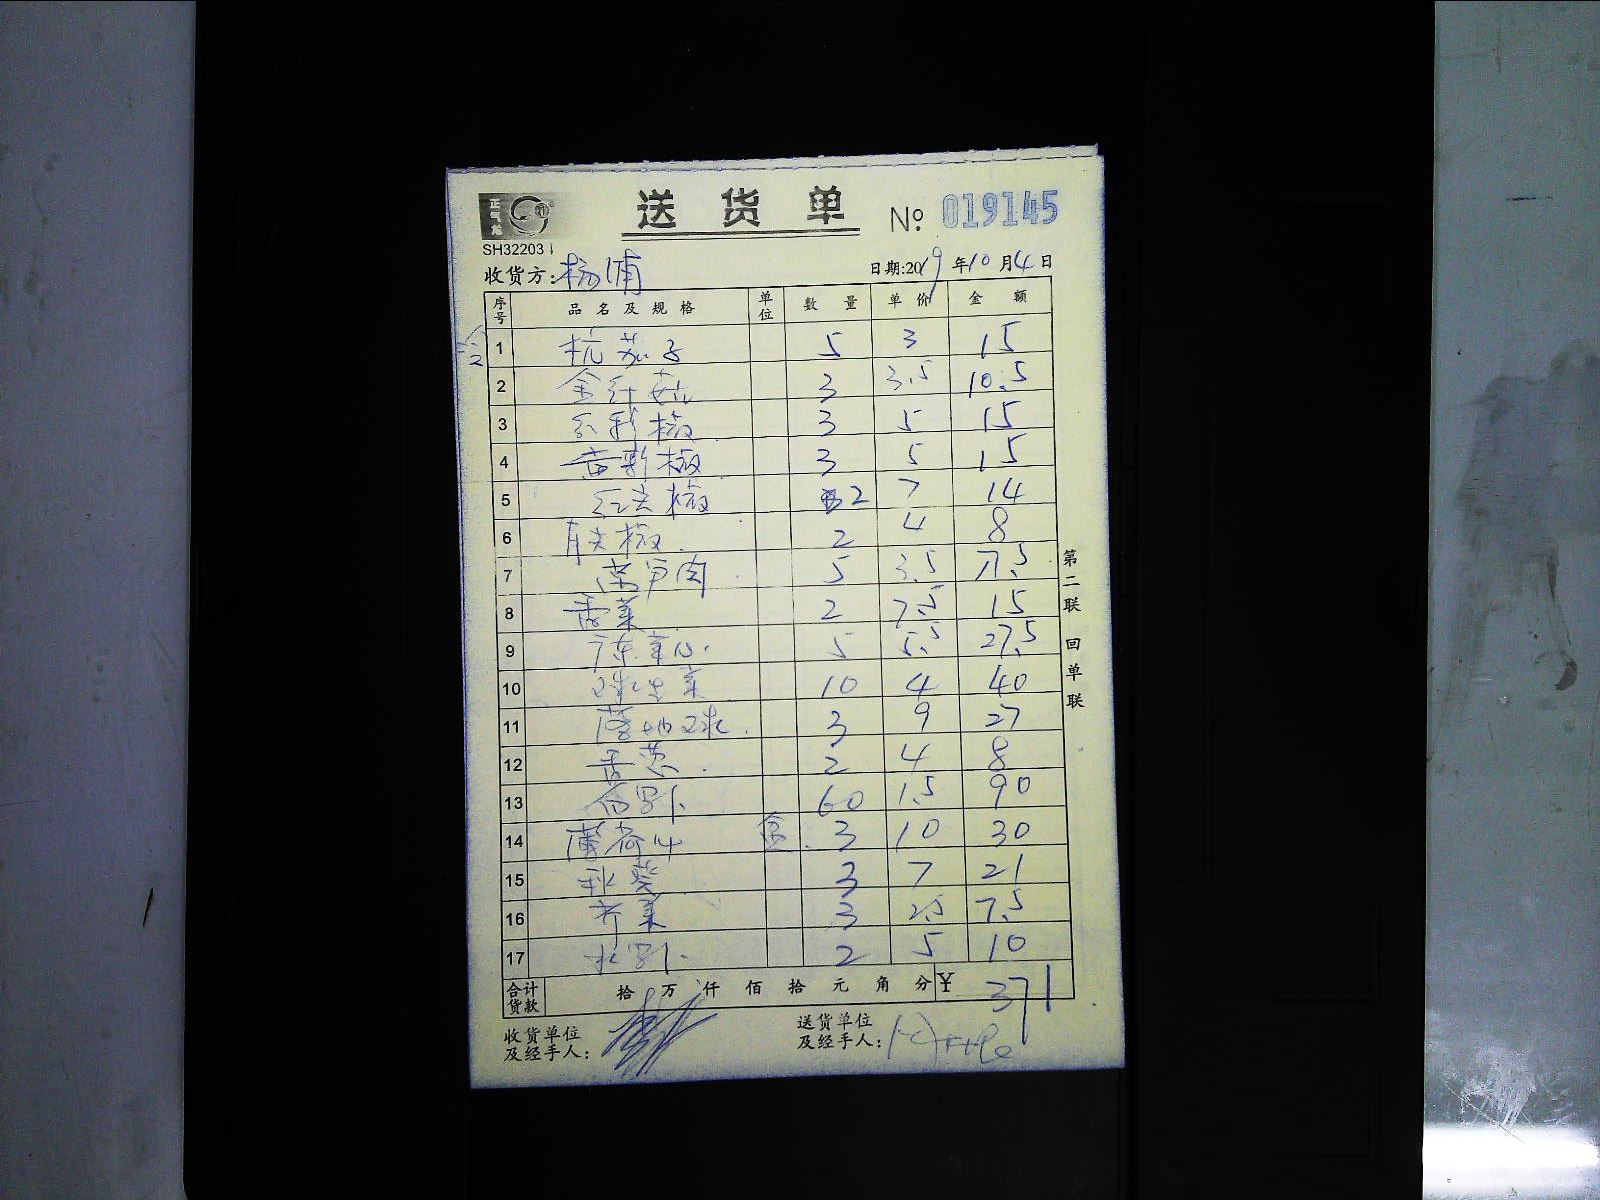 正气龙
送货单 No: 019145
SH32203
收货方: 杨浦 日期:2019年10月4日
序号 品名及规格 单位 数量 单价 金额
1 杭茄子 5 3 15
2 金针菇 3 3.5 10.5
3 红彩椒 3 5 15
4 黄彩椒 3 5 15
5 红尖椒 2 7 14
6 青尖椒 2 4 8
7 5 3.5 7.5
8 香菜 2 7.5 15
9 广东菜心 5 5.5 27.5
10 球生菜 10 4 40
11 3 9 27
12 香葱 2 4 8
13 白萝卜 60 1.5 90
14 薄荷叶 盒 3 10 30
15 秋葵 3 7 21
16 齐菜 3 2.5 7.5
17 水萝卜 2 5 10
合计货款 拾 万 仟 佰 拾 元 角 分 ¥ 371
收货单位及经手人: 送货单位及经手人:
第二联 回单联